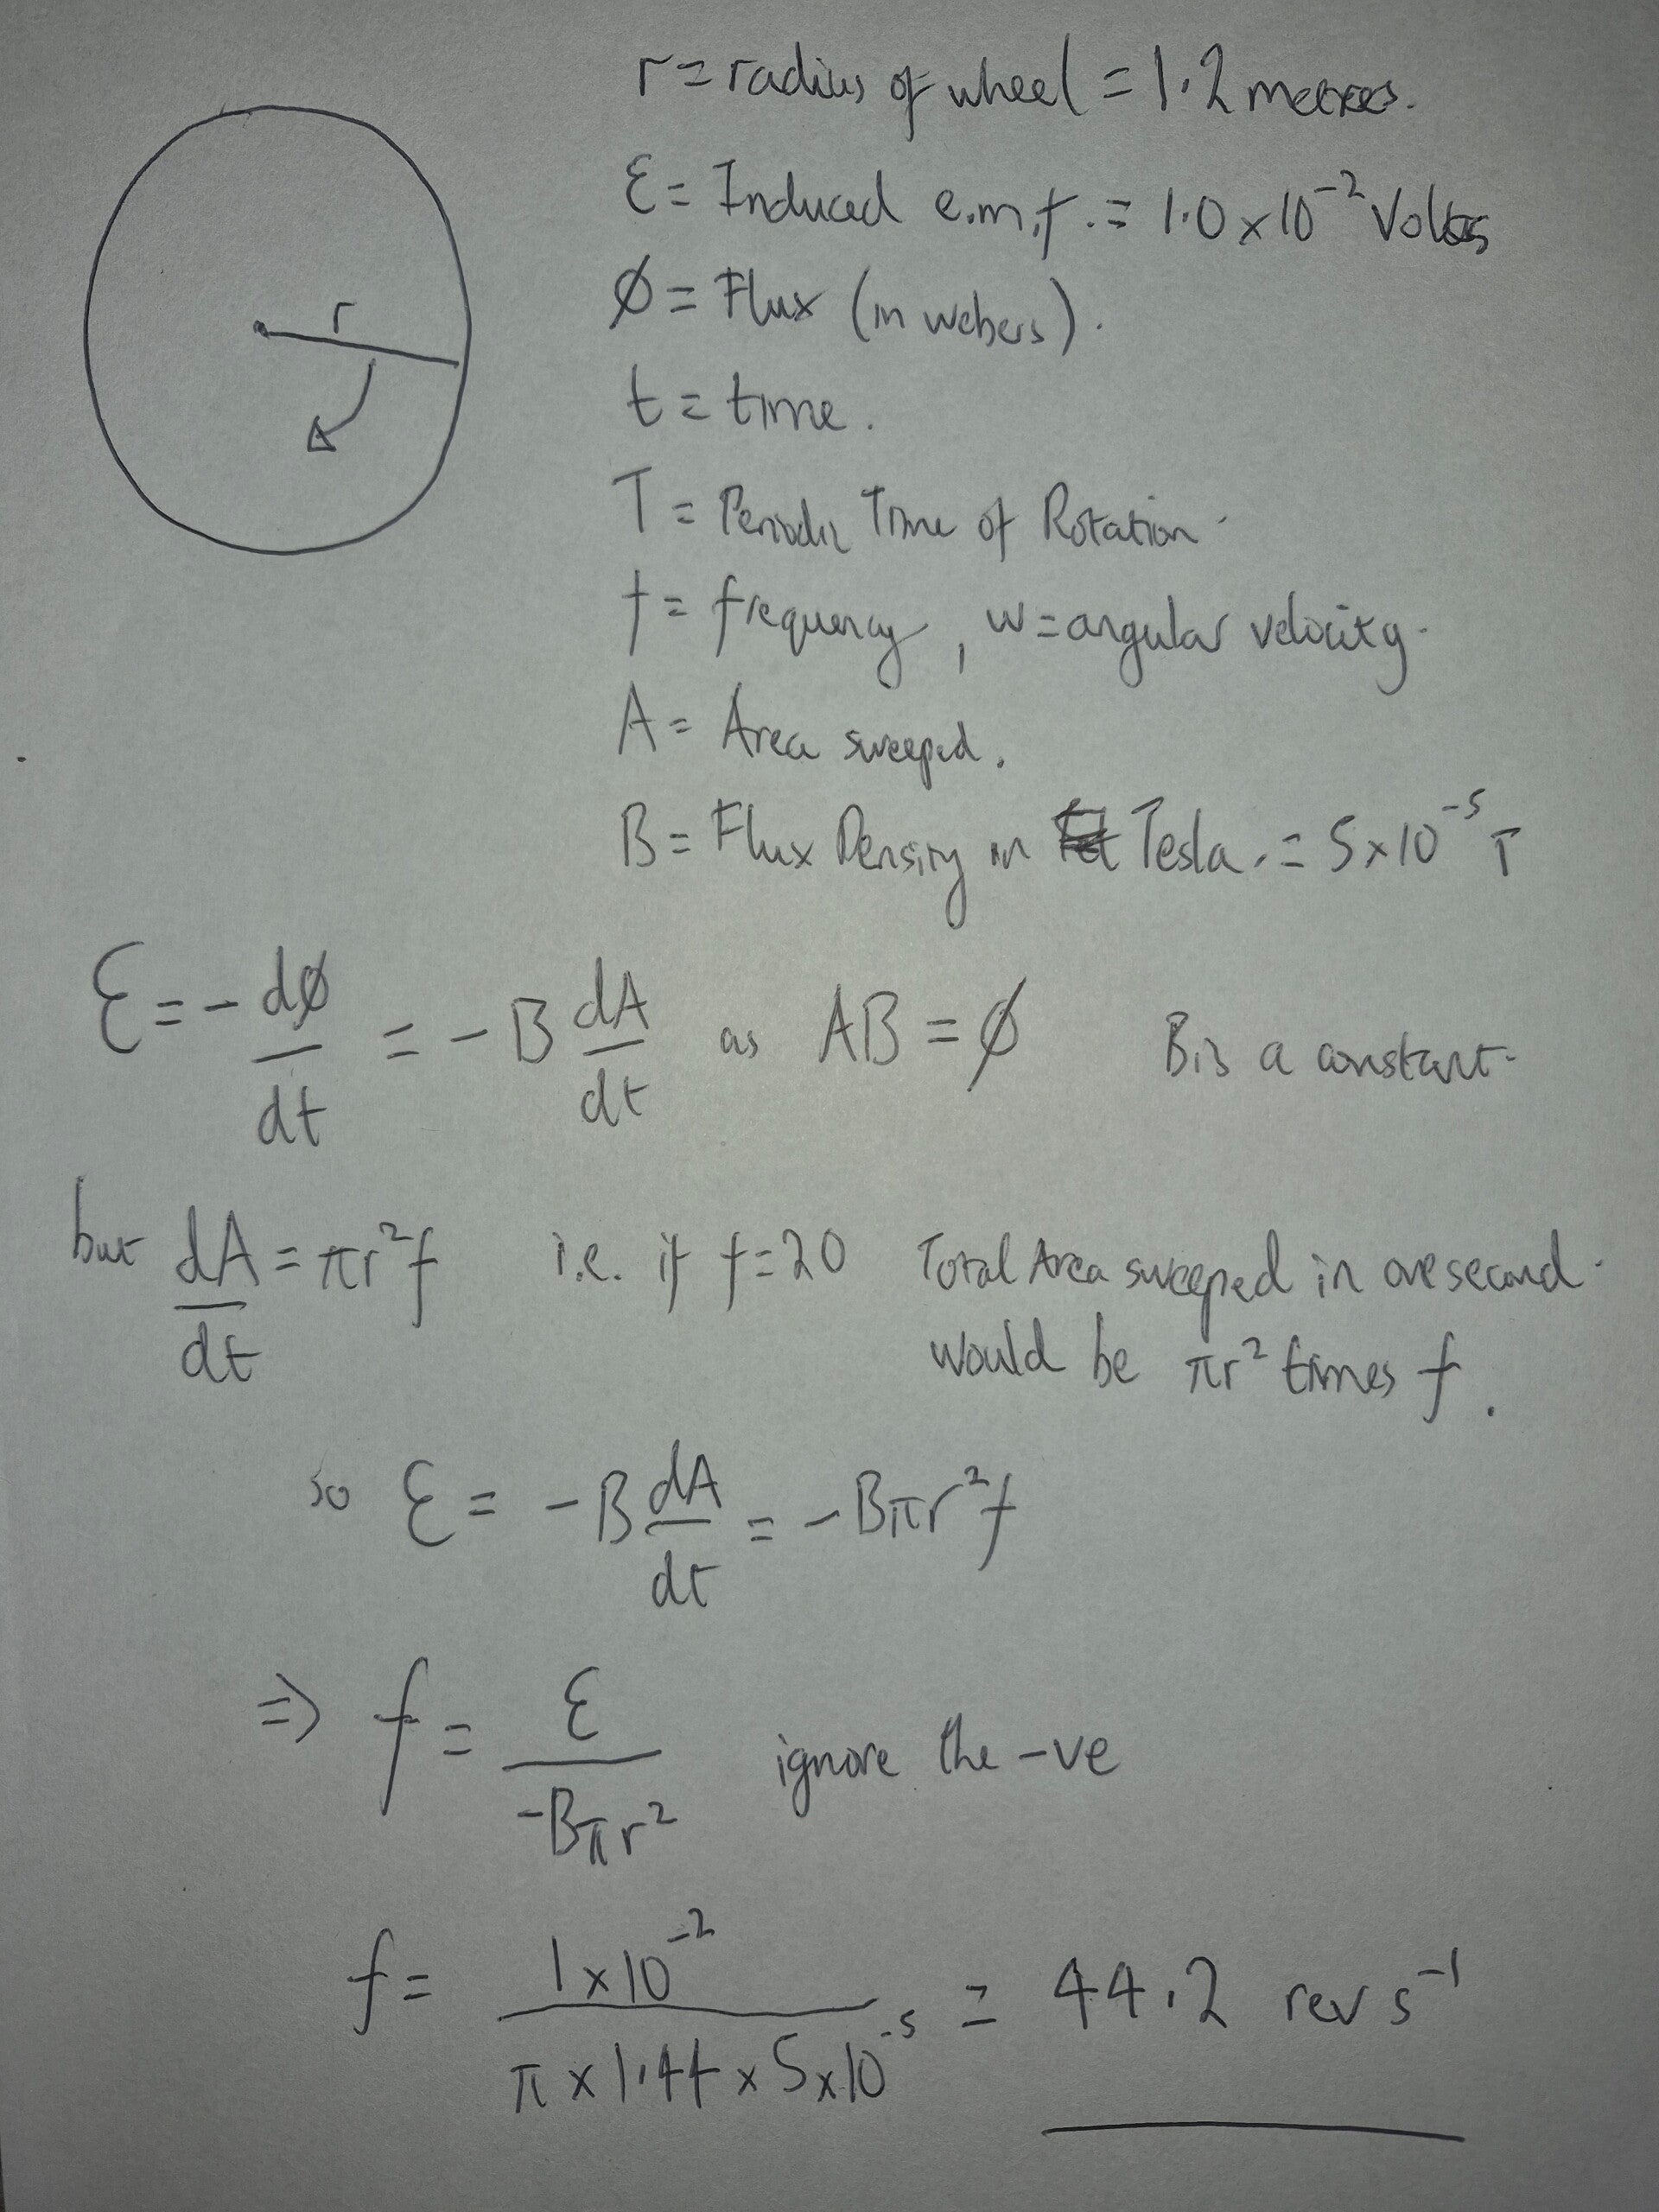 r = radius of wheel = 1.2 metres.
r
Ɛ = Induced e.m.f. = 1.0 x 10⁻² Volts
Ø = Flux (in webers).
t = time.
T = Periodic Time of Rotation.
f = frequency, w = angular velocity.
A = Area sweeped.
B = Flux Density in Tesla. = 5 x 10⁻⁵ T
Ɛ = - dØ/dt = - B dA/dt as AB = Ø B is a constant.
but dA/dt = πr²f i.e. if f = 20 Total Area sweeped in one second.
would be πr² times f.
so Ɛ = - B dA/dt = - Bπr²f
=> f = Ɛ/-Bπr² ignore the -ve
f = 1 x 10⁻²/π x 1.44 x 5 x 10⁻⁵ = 44.2 rev s⁻¹